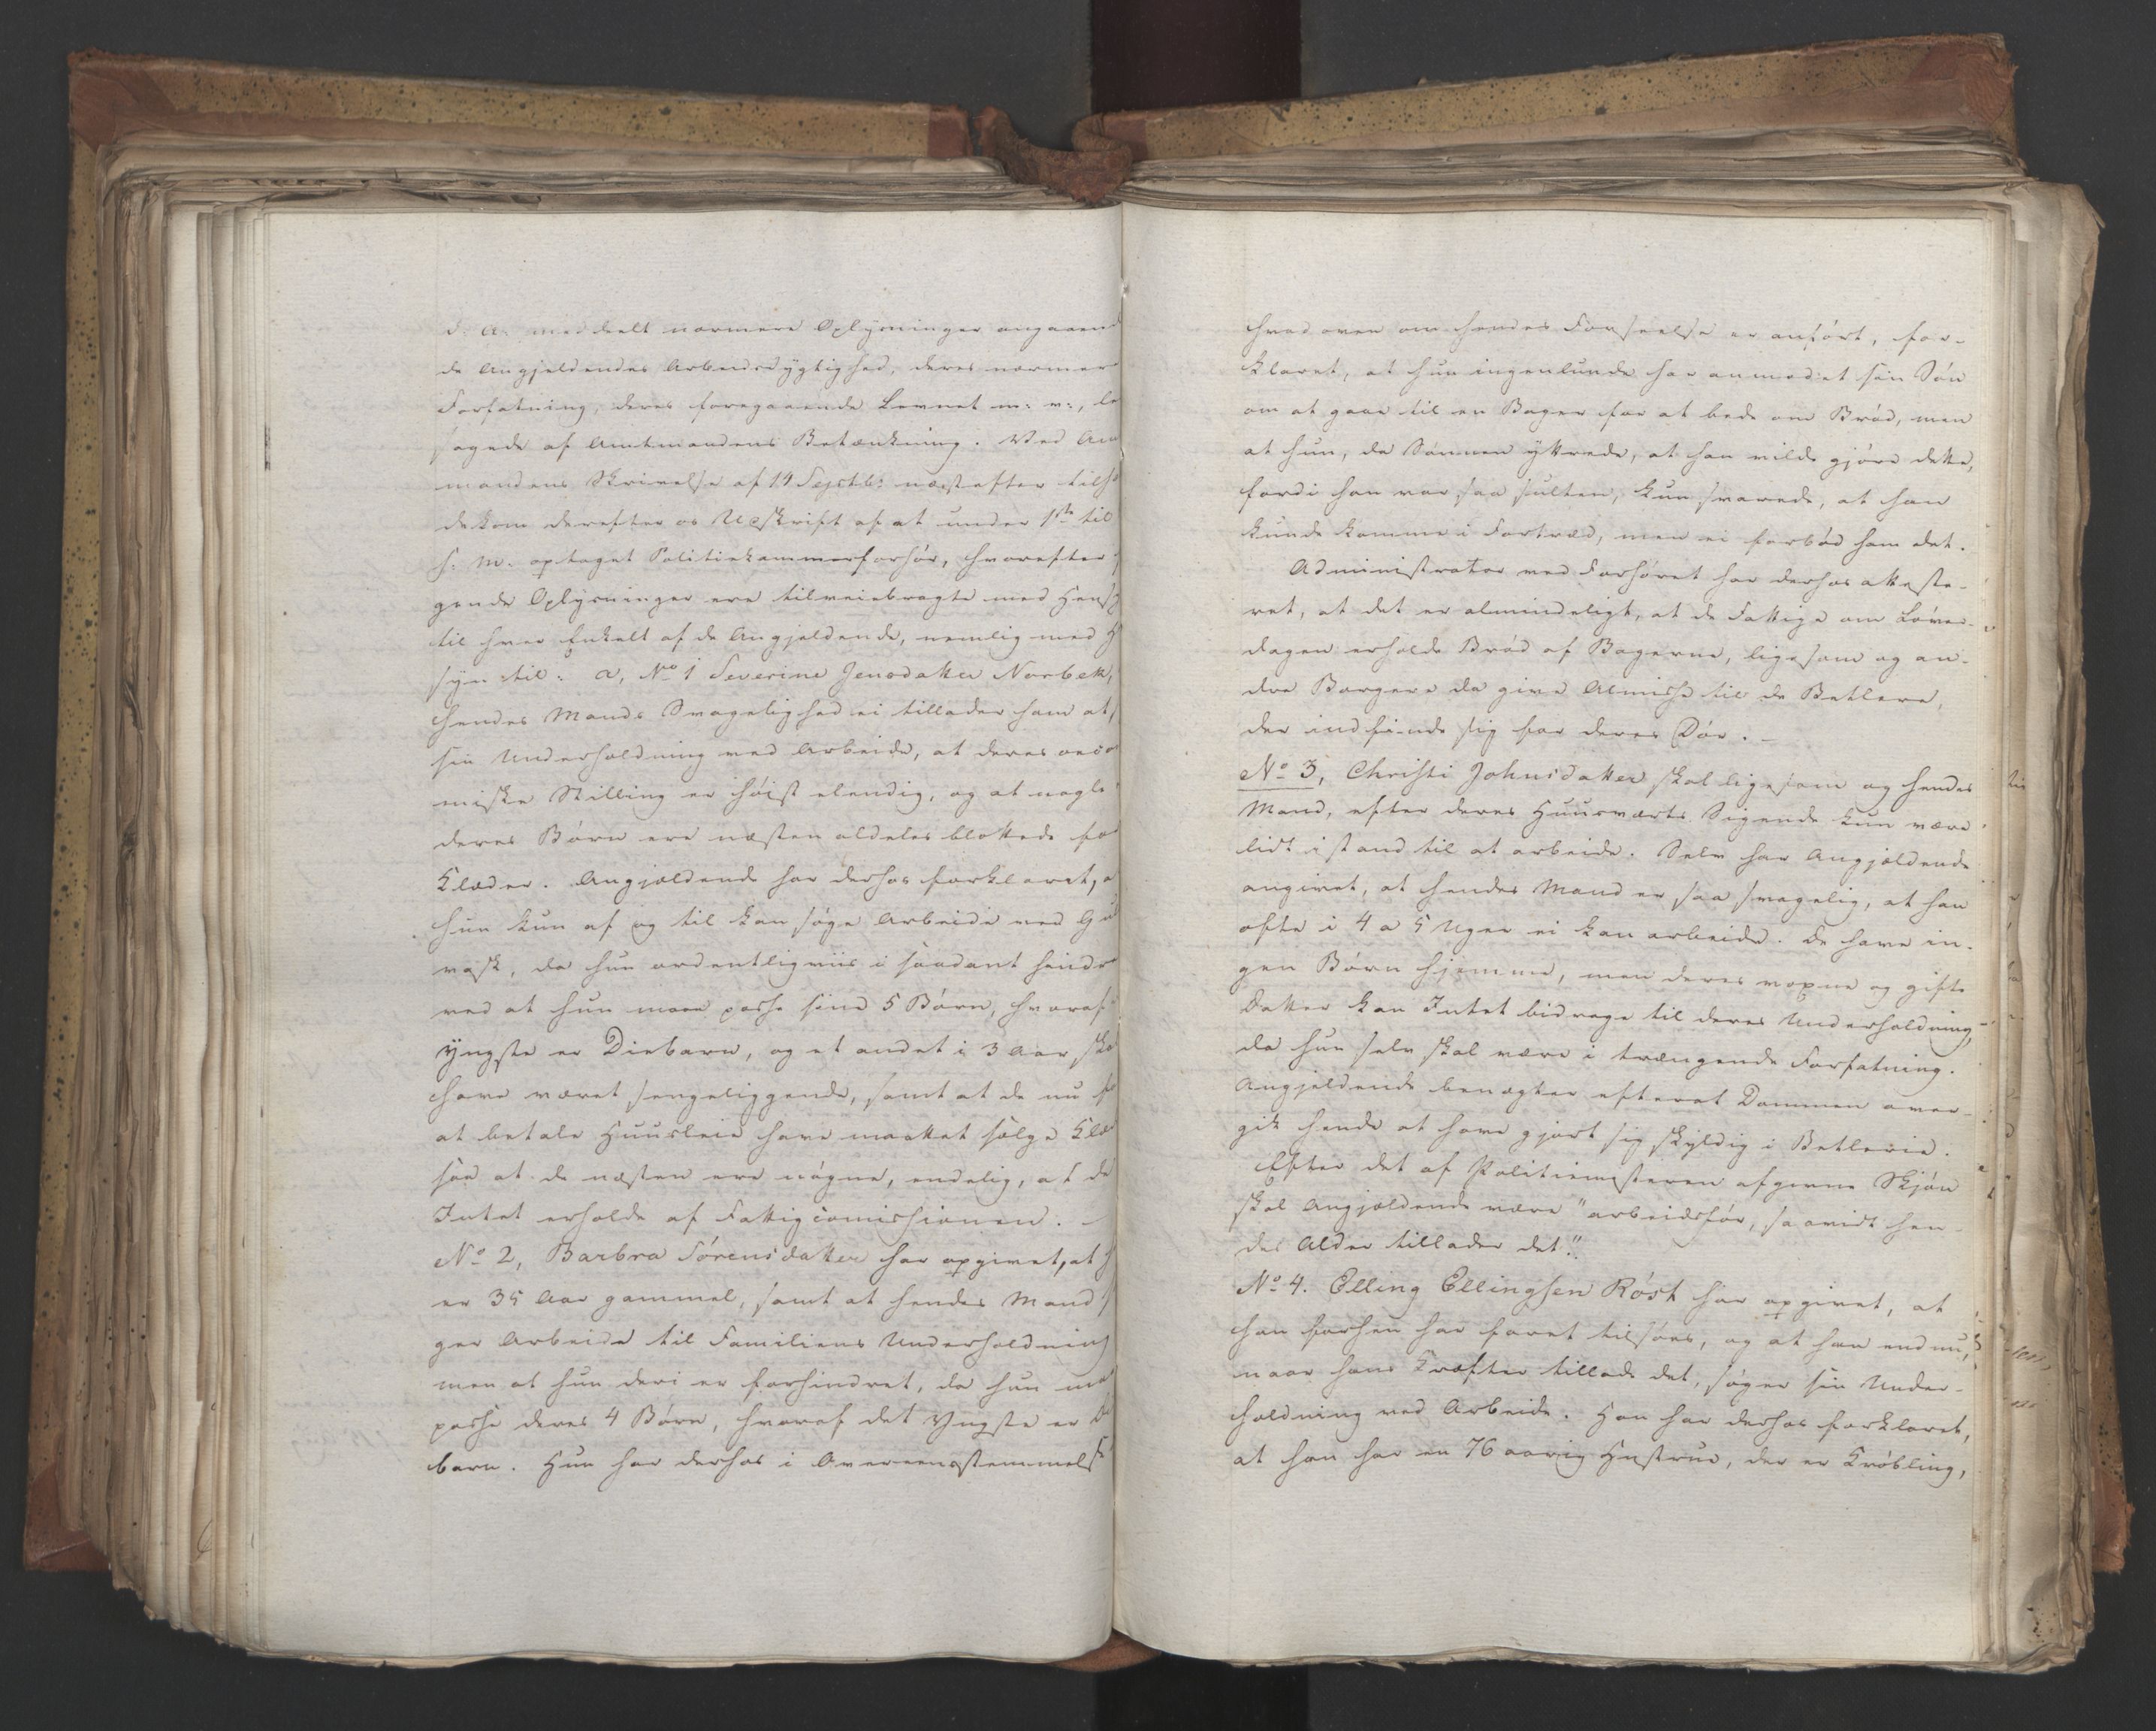 d: A: meddeelt nærmere Oplysninger angaaend
de Angjeldendes Arbeidsdygtighed, deres nærmer
Forfatning, deres foregaaende Levnet m: v:, le
sagede af Amtmandens Betænkning. Ved Am
mandens Skrivelse af 14 Septbr: næstefter tilh
dekom derefter os Udskrift af et under 1ste til
h: M: optaget Politiekammerforhör, hvorefter
gende Oplysninger ere tilveiebragte med Hens
til hver Enkelt af de Angjeldende, nemlig med H
syn til: a, No 1 Severine Jensdatter Norbek,
hendes Mands Svagelighed ei tillader ham at
sin Underholdning ved Arbeide, at deres oeco
miske Stilling er høist elendig, og at nogle
deres Børn ere næsten aldeles blottede fo
Klæder. Angjældende har derhos forklaret, a
hun kun af og til kan søge Arbeide ved Gul
vask, da hun ordentligviis i saadant hindr
ved at hun maae passe sine 5 Børn, hvoraf
Yngste er Diebarn, og et andet i 3 Aar ska
have været sengeliggende, samt at de nu f
at betale Huusleie have maattet sælge Klæ
saa at de næsten ere nøgne, endelig, at de
Intet erholde af Fattigcomissionen. –
No 2, Barbra Sørensdatter har opgivet, at h
er 35 Aar gammel, samt at hendes Mand s
ger Arbeide til Familiens Underholdning
men at hun deri er forhindret, da hun ma
passe deres 4 Børn, hvoraf det Yngste er Di
barn. Hun har derhos i Overeensstemmelse
hvad oven om hendes Forseelse er anført, for-
klaret, at hun ingenlunde har anmodet sin Søn
om at gaae til en Bager for at bede om Brød, men
at hun, da Sønnen yttrede, at han vilde gjøre dette,
fordi han var saa sulten, kun svarede, at han
kunde komme i Fortræd, men ei forbød ham det.
Administrator ved Forhøret har derhos atteste-
ret, at det er almindeligt, at de Fattige om Løver-
dagen erholde Brød af Bagerne, ligesom og an-
dre Borgere da give Almisse til de Betlere,
der indfinde sig for deres Dør. –
No 3, Christi Johnsdatter skal ligesom og hendes
Mand, efter deres Huusværts Sigende kun være
lidt istand til at arbeide. Selv har Angjældende
angivet, at hendes Mand er saa svagelig, at han
ofte i 4 a 5 Uger ei kan arbeide. De have in-
gen Børn hjemme, men deres voxne og gifte
Datter kan Intet bidrage til deres Underholdning,
da hun selv skal være i trængende Forfatning.
Angjeldende benægter efterat Dommen over-
gik hende at have gjort sig skyldig i Betlerie.
Efter det af Politiemesteren afgivne Skjøn
skal Angjældende være "arbeidsför, saavidt hen-
des Alder tillader det."
No 4. Elling Ellingsen Röst har opgivet, at
han forhen har faret tilsøes, og at han endnu,
naar hans Kræfter tillade det, søger sin Under-
holdning ved Arbeide. Han har derhos forklaret,
at han har en 76 aarig Hustrue, der er Krøbling,